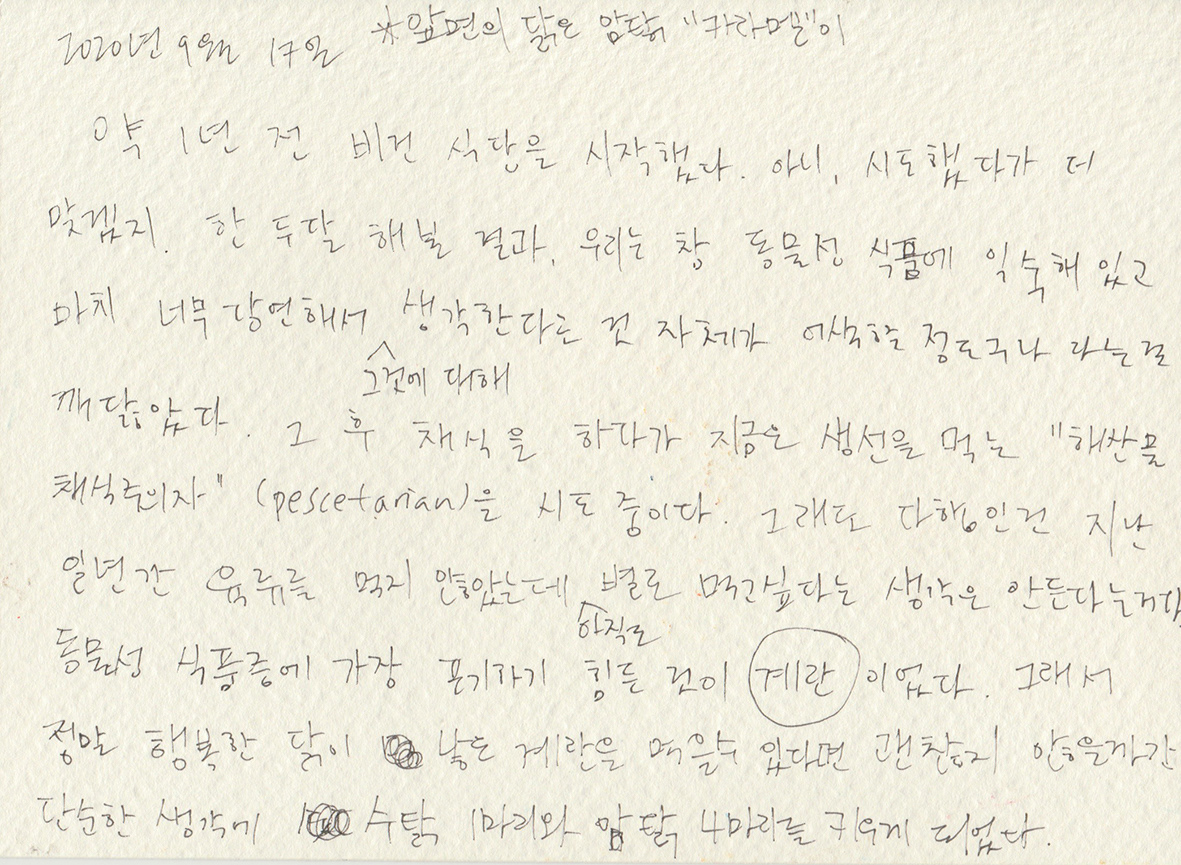 2020년 9월 17일 *앞면의 닭은 암탉 "카라멜"이
약 1년 전 비건 식단을 시작했다. 아니, 시도했다가 더
맞겠지. 한 두달 해본 결과, 우리는 참 동물성 식품에 익숙해 있고
마치 너무 당연해서 생각한다는 것 자체가 어색할 정도구나 라는걸
그것에 대해
깨닳았다. 그 후 채식을 하다가 지금은 생선을 먹는 "해산물
채식주의자" (pescetarian)을 시도 중이다. 그래도 다행인건 지난
일년간 육류를 먹지 않았는데 별로 먹고싶다는 생각은 안든다는거다.
아직도
동물성 식품중에 가장 포기하기 힘든 것이 계란 이었다. 그래서
정말 행복한 닭이 낳는 계란을 먹을수 있다면 괜찮지 않을까란
단순한 생각에 수탉 1마리와 암탉 4마리를 키우게 되었다.